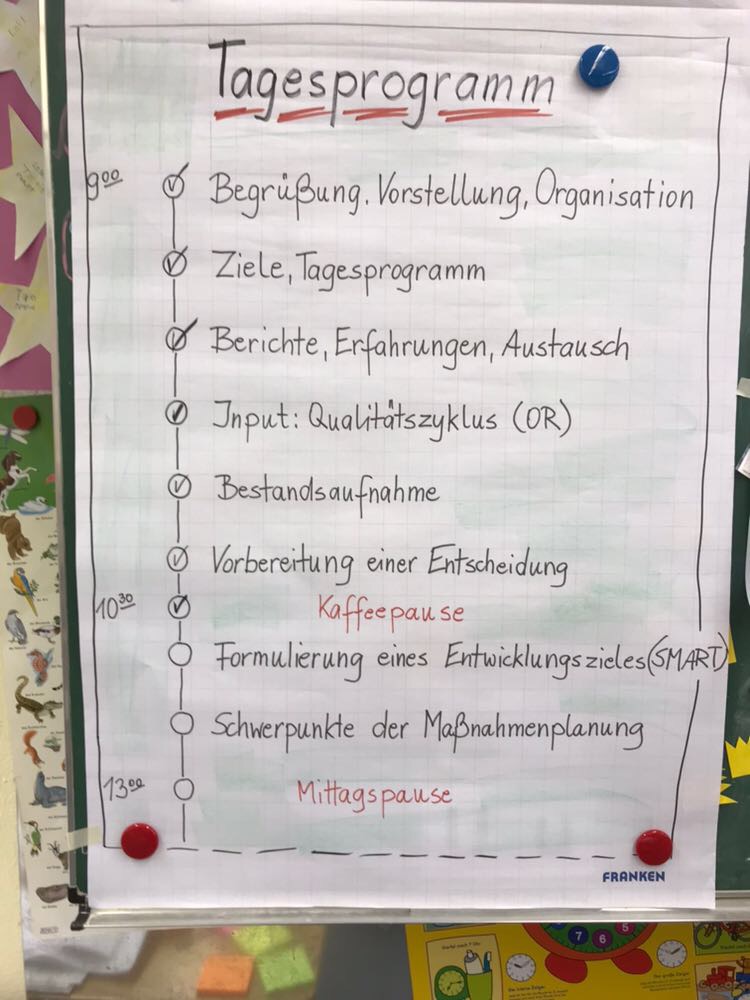 Tagesprogramm
9⁰⁰ Begrüßung. Vorstellung, Organisation
Ziele, Tagesprogramm
Berichte, Erfahrungen, Austausch
Input: Qualitätszyklus (OR)
Bestandsaufnahme
Vorbereitung einer Entscheidung
10³⁰ Kaffeepause
Formulierung eines Entwicklungszieles (SMART)
Schwerpunkte der Maßnahmenplanung
13⁰⁰ Mittagspause
FRANKEN
7 6 5